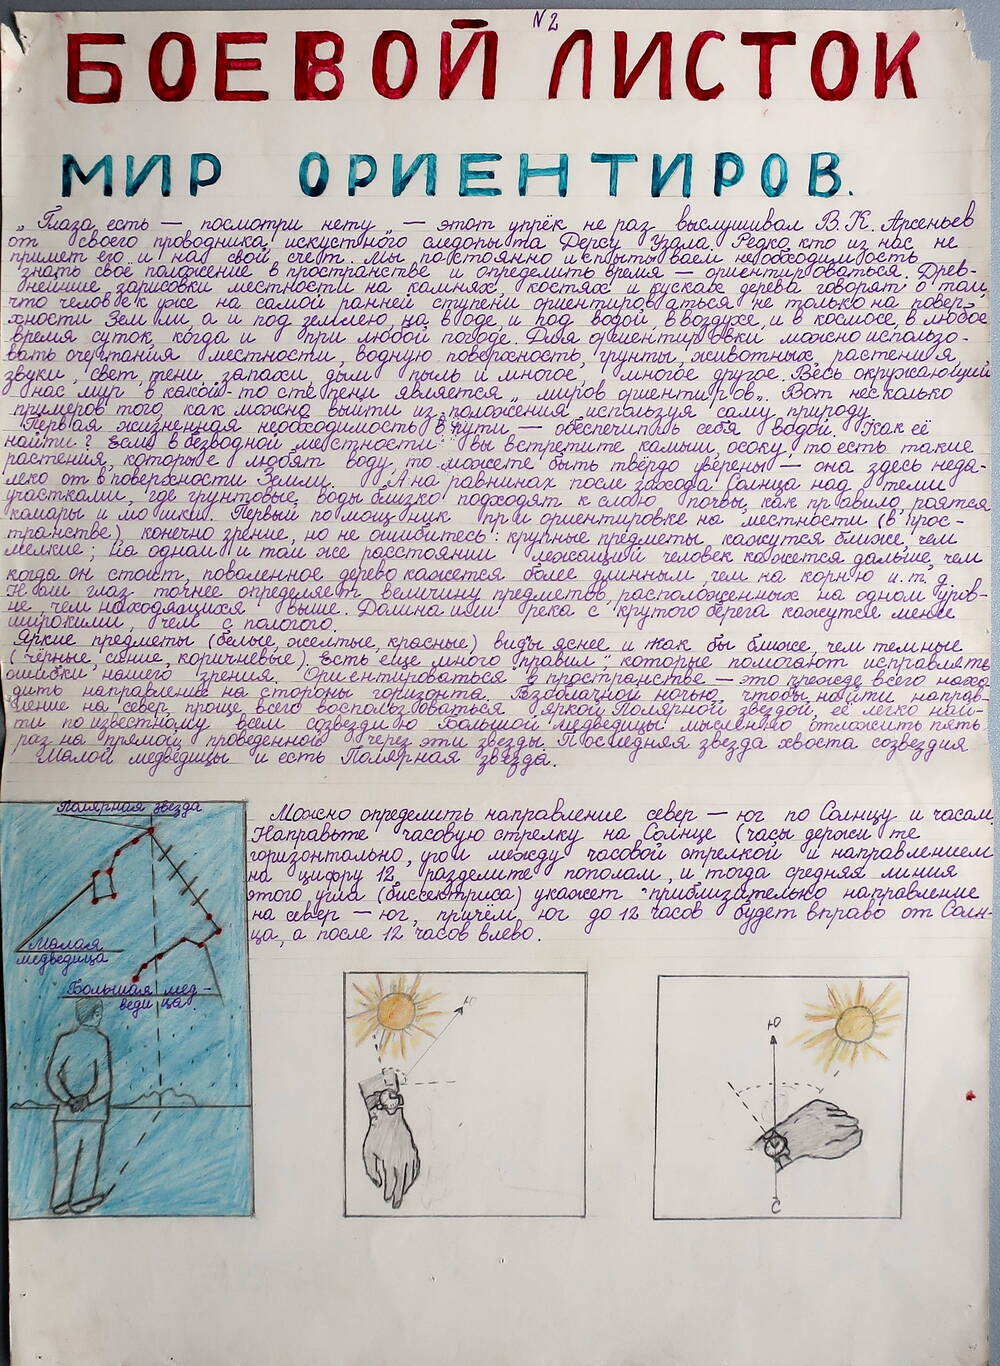 N2
БОЕВОЙ ЛИСТОК
МИР ОРИЕНТИРОВ.
„Глаза есть — посмотри нету" — этот упрёк не раз выслушивал В. К. Арсеньев
от своего проводника, искустного следопыта Дерсу Узала. Редко кто из нас не
примет его и на свой счет. Мы постоянно испытываем необходимость
знать своё положение в пространстве и определить время — ориентироваться. Древ-
нейшие зарисовки местности на камнях, костях и кусках дерева говорят о том,
что человек уже на самой ранней ступени ориентироваться не только на повер-
хности Земли, а и под землею, на воде, и под водой, в воздухе, и в космосе, в любое
время суток, когда и при любой погоде. Для ориентировки можно использо-
вать очертания местности, водную поверхность, грунты, животных, растения,
звуки, свет, тени, запахи, дым пыль и многое, многое другое. Весь окружающий
нас мир в какой-то степени является „миров ориентиров". Вот несколько
примеров того, как можно выйти из положения используя саму природу.
Первая жизненная необходимость в пути — обеспечить себя водой. Как её
найти? Если в безводной местности вы встретите камыш, осоку, то есть такие
растения, которые любят воду, то можете быть твёрдо уверены — она здесь неда-
леко от поверхности Земли. А на равнинах после захода Солнца над теми
участками, где грунтовые воды близко подходят к слою почвы, как правило, роятся
камары и мошки. Первый помощник при ориентировке на местности (в прос-
транстве) конечно зрение, но не ошибитесь: крупные предметы кажутся ближе, чем
мелкие; На одном и том же расстоянии лежащий человек кажется дальше, чем
когда он стоит, поваленное дерево кажется более длинным, чем на корню и. т. д.
Наш глаз точнее определяет величину предметов, расположенных на одном уров-
не, чем находящихся выше. Долина или река с крутого берега кажутся менее
широкими, чем с пологого.
Яркие предметы (белые, желтые, красные) виды яснее и как бы ближе, чем темные
(чёрные, синие, коричневые). Есть еще много правил которые помогают исправлять
ошибки нашего зрения. Ориентироваться в пространстве — это прежде всего нахо-
дить направление на стороны горизонта. Безоблачной ночью, чтобы найти направ-
ление на север, проще всего воспользоваться яркой Полярной звездой, её легко най-
ти по известному всем созвездию Большой медведицы мысленно отложить пять
раз на прямой, проведенной через эти звезды. Последняя звезда хвоста созвездия
Малой медведицы и есть Полярная звезда.
Полярная звезда
Малая
медведица
Большая мед-
ведица.
Можно определить направление север — юг по Солнцу и часам.
Направьте часовую стрелку на Солнце (часы держи те
горизонтально, угол между часовой стрелкой и направлением
на цифру 12 разделите пополам, и тогда средняя линия
этого угла (биссектриса) укажет приблизительно направление
на север — юг, причём, юг до 12 часов будет вправо от Солн-
ца, а после 12 часов влево.
Ю
Ю
С